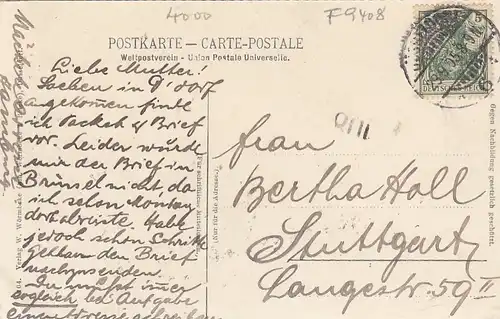 4000
F 9408
POSTKARTE — CARTE-POSTALE
Weltpostverein - Union Postale Universelle.
5
DEUTSCHES REICH
Liebe Mutter!
Soeben in D'dorf
angekommen finde
ich Packet & Brief
vor. Leider wurde
mir der Brief in
Brüssel nicht, da
ich schon Montag
dort abreiste. Habe
jedoch schon Schritte
gethan den Brief
nachzusenden.
Du mußt immer
sogleich bei Aufgabe
eine Adresse schreiben
Frau
Bertha Holl
Stuttgart
Langestr. 59 II
(Nur für die Adresse.)
Verlag W.
Gegen Nachbildung gesetzlich geschützt.